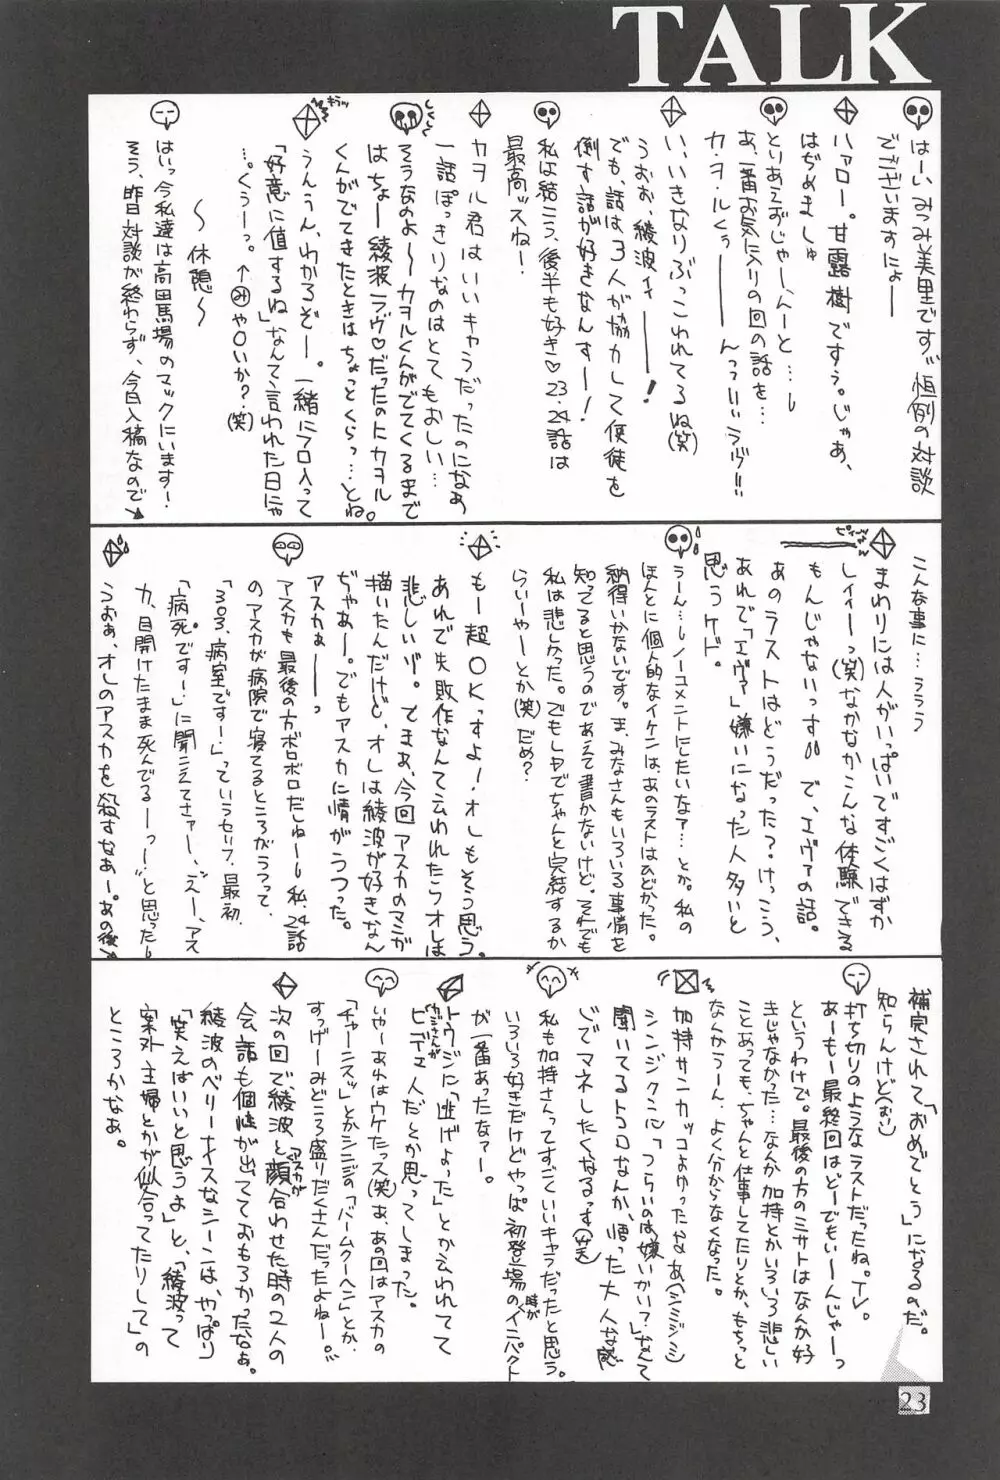 TALK
はーい、みつみ美里です。恒例の対談
でございますにょー
ハァロー。甘露樹ですぅ。じゃあ、
はぢめましゅ
とりあえずじゃーんーと…し
あ、一番お気に入りの回の話を…
カ・ヲ・ルくぅーーんっっいいラヴ!!
い、いきなりぶっこわれてるね(笑)
うおお、綾波ィーーー!
でも、話は3人が協力して使徒を
倒す話が好きなんすー!
私は結こう、後半も好き♡23、24話は
最高ッスねー!
カヲル君はいいキャラだったのになぁ
一話ぽっきりなのはとてもおしい…
そうなのよ〜〜カヲルくんがでてくるまで
はちょー綾波ラヴ♡だったのにカヲル
くんがでてきたときはちょっとくらっ…とね。
うんうん、わかるぞー。一緒にフロ入って
「好意に値するね」なんて言われた日にゃ
…。くぅーっ。↑みや〇いか?(笑)
〜休憩〜
はいっ今私達は高田馬場のマックにいます!
そう、昨日対談が終わらず、今日入稿なので
こんな事に…ううう
まわりには人がいっぱいですごくはずか
しイィーっ(笑)なかなかこんな体験できる
もんじゃないっす で、エヴァの話。
あのラストはどうだった?けっこう、
あれで「エヴァ」嫌いになった人多いと
思うケド。
うーん…しノーコメントにしたいなァ…とか。私の
ほんとに個人的なイケンは、あのラストはひどかった。
納得いかないです。ま、みなさんもいろいろ事情を
知ってると思うのであえて書かないけど。それでも
私は悲しかった。でもLDでちゃんと完結するか
らいーやーとか(笑)だめ?
もー超OKっすよ!オレもそう思う。
あれで失敗作なんて云われたらオレは
悲しいゾ。でまあ、今回アスカのマンガ
描いたんだけど、オレは綾波が好きなん
ぢゃあー。でもアスカに情がうつった。
アスカぁーーっ
アスカも最後の方ボロボロだしねーーし私、24話
のアスカが病院で寝てるところがうつって、
「303、病室ですー」っていうセリフ、最初
「病死ですー」に聞こえてさァー、ズー、アス
カ、目開けたまま死んでるーーっ!と思ったし
うおぁ、オレのアスカを殺すなぁー。あの後
補完されて「おめでとう」になるのだ。
知らんけど(おい)
打ち切りのようなラストだったね。TV。
あーもー最終回はどーでもいーんじゃーっ
というわけで。最後の方のミサトはなんか好
きじゃなかった…なんか加持とかいろいろ悲しい
ことあっても、ちゃんと仕事してたりとか、もちっと
なんかうーん。よく分からなくなった。
加持サンカッコよかったなぁ(シミジミ)
シンジクンに「つらいのは嫌いかい?」なんて
聞いてるトコロなんか、悟った大人な感
じでマネしたくなるっす(笑)
私も加持さんってすごくいいキャラだったと思う。
いろいろ好きだけどやっぱ初登場の時がインパクト
が一番あったなァー。
トウジに「逃げよった」とか云われてて
ヒデェ人だとか思ってしまった。
いやーあれはウケたっス(笑)あ、あの回はアスカの
「チャーンスッ」とかシンジの「バームクーヘン」とか、
すっげーみどころ盛りだくさんだったよねー。
次の回で、綾波とアスカが顔合わせた時の2人の
会話も個性が出ててておもろかったなぁ。
綾波のベリーナイスなシーンは、やっぱり
「笑えばいいと思うよ」と、「綾波って
案外、主婦とかが似合ってたりして」の
ところかなぁ。
23